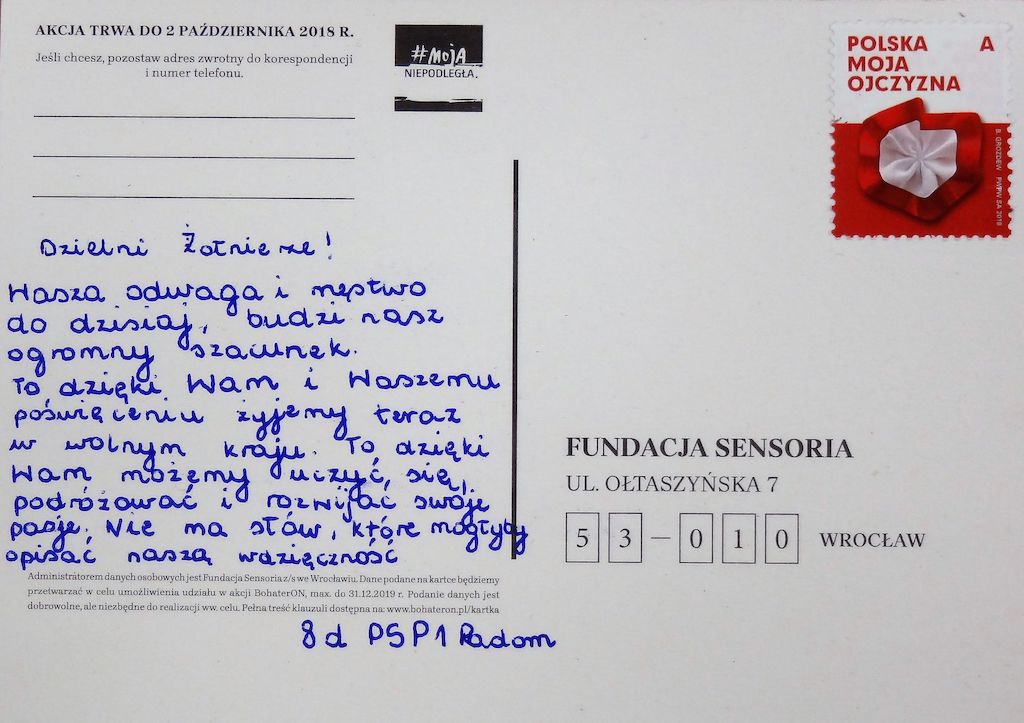 AKCJA TRWA DO 2 PAŹDZIERNIKA 2018 R.
Jeśli chcesz, pozostaw adres zwrotny do korespondencji
i numer telefonu.
#MOJA
NIEPODLEGŁA.
POLSKA A
MOJA
OJCZYZNA
B. GROZDEW PWPW SA 2018
Dzielni Żołnierze!
Wasza odwaga i męstwo
do dzisiaj, budzi nasz
ogromny szacunek.
To, dzięki Wam i Waszemu
poświęceniu żyjemy teraz
w wolnym kraju. To, dzięki
Wam możemy uczyć, się,
podróżować i rozwijać swoje
pasje. Nie ma słów, które mogłyby
opisać naszą wdzięczność
Administratorem danych osobowych jest Fundacja Sensoria z/s we Wrocławiu. Dane podane na kartce będziemy
przetwarzać w celu umożliwienia udziału w akcji BohaterON, max. do 31.12.2019 r. Podanie danych jest
dobrowolne, ale niezbędne do realizacji ww. celu. Pełna treść klauzuli dostępna na: www.bohateron.pl/kartka
8d PSP1 Radom
FUNDACJA SENSORIA
UL. OŁTASZYŃSKA 7
53–010 WROCŁAW